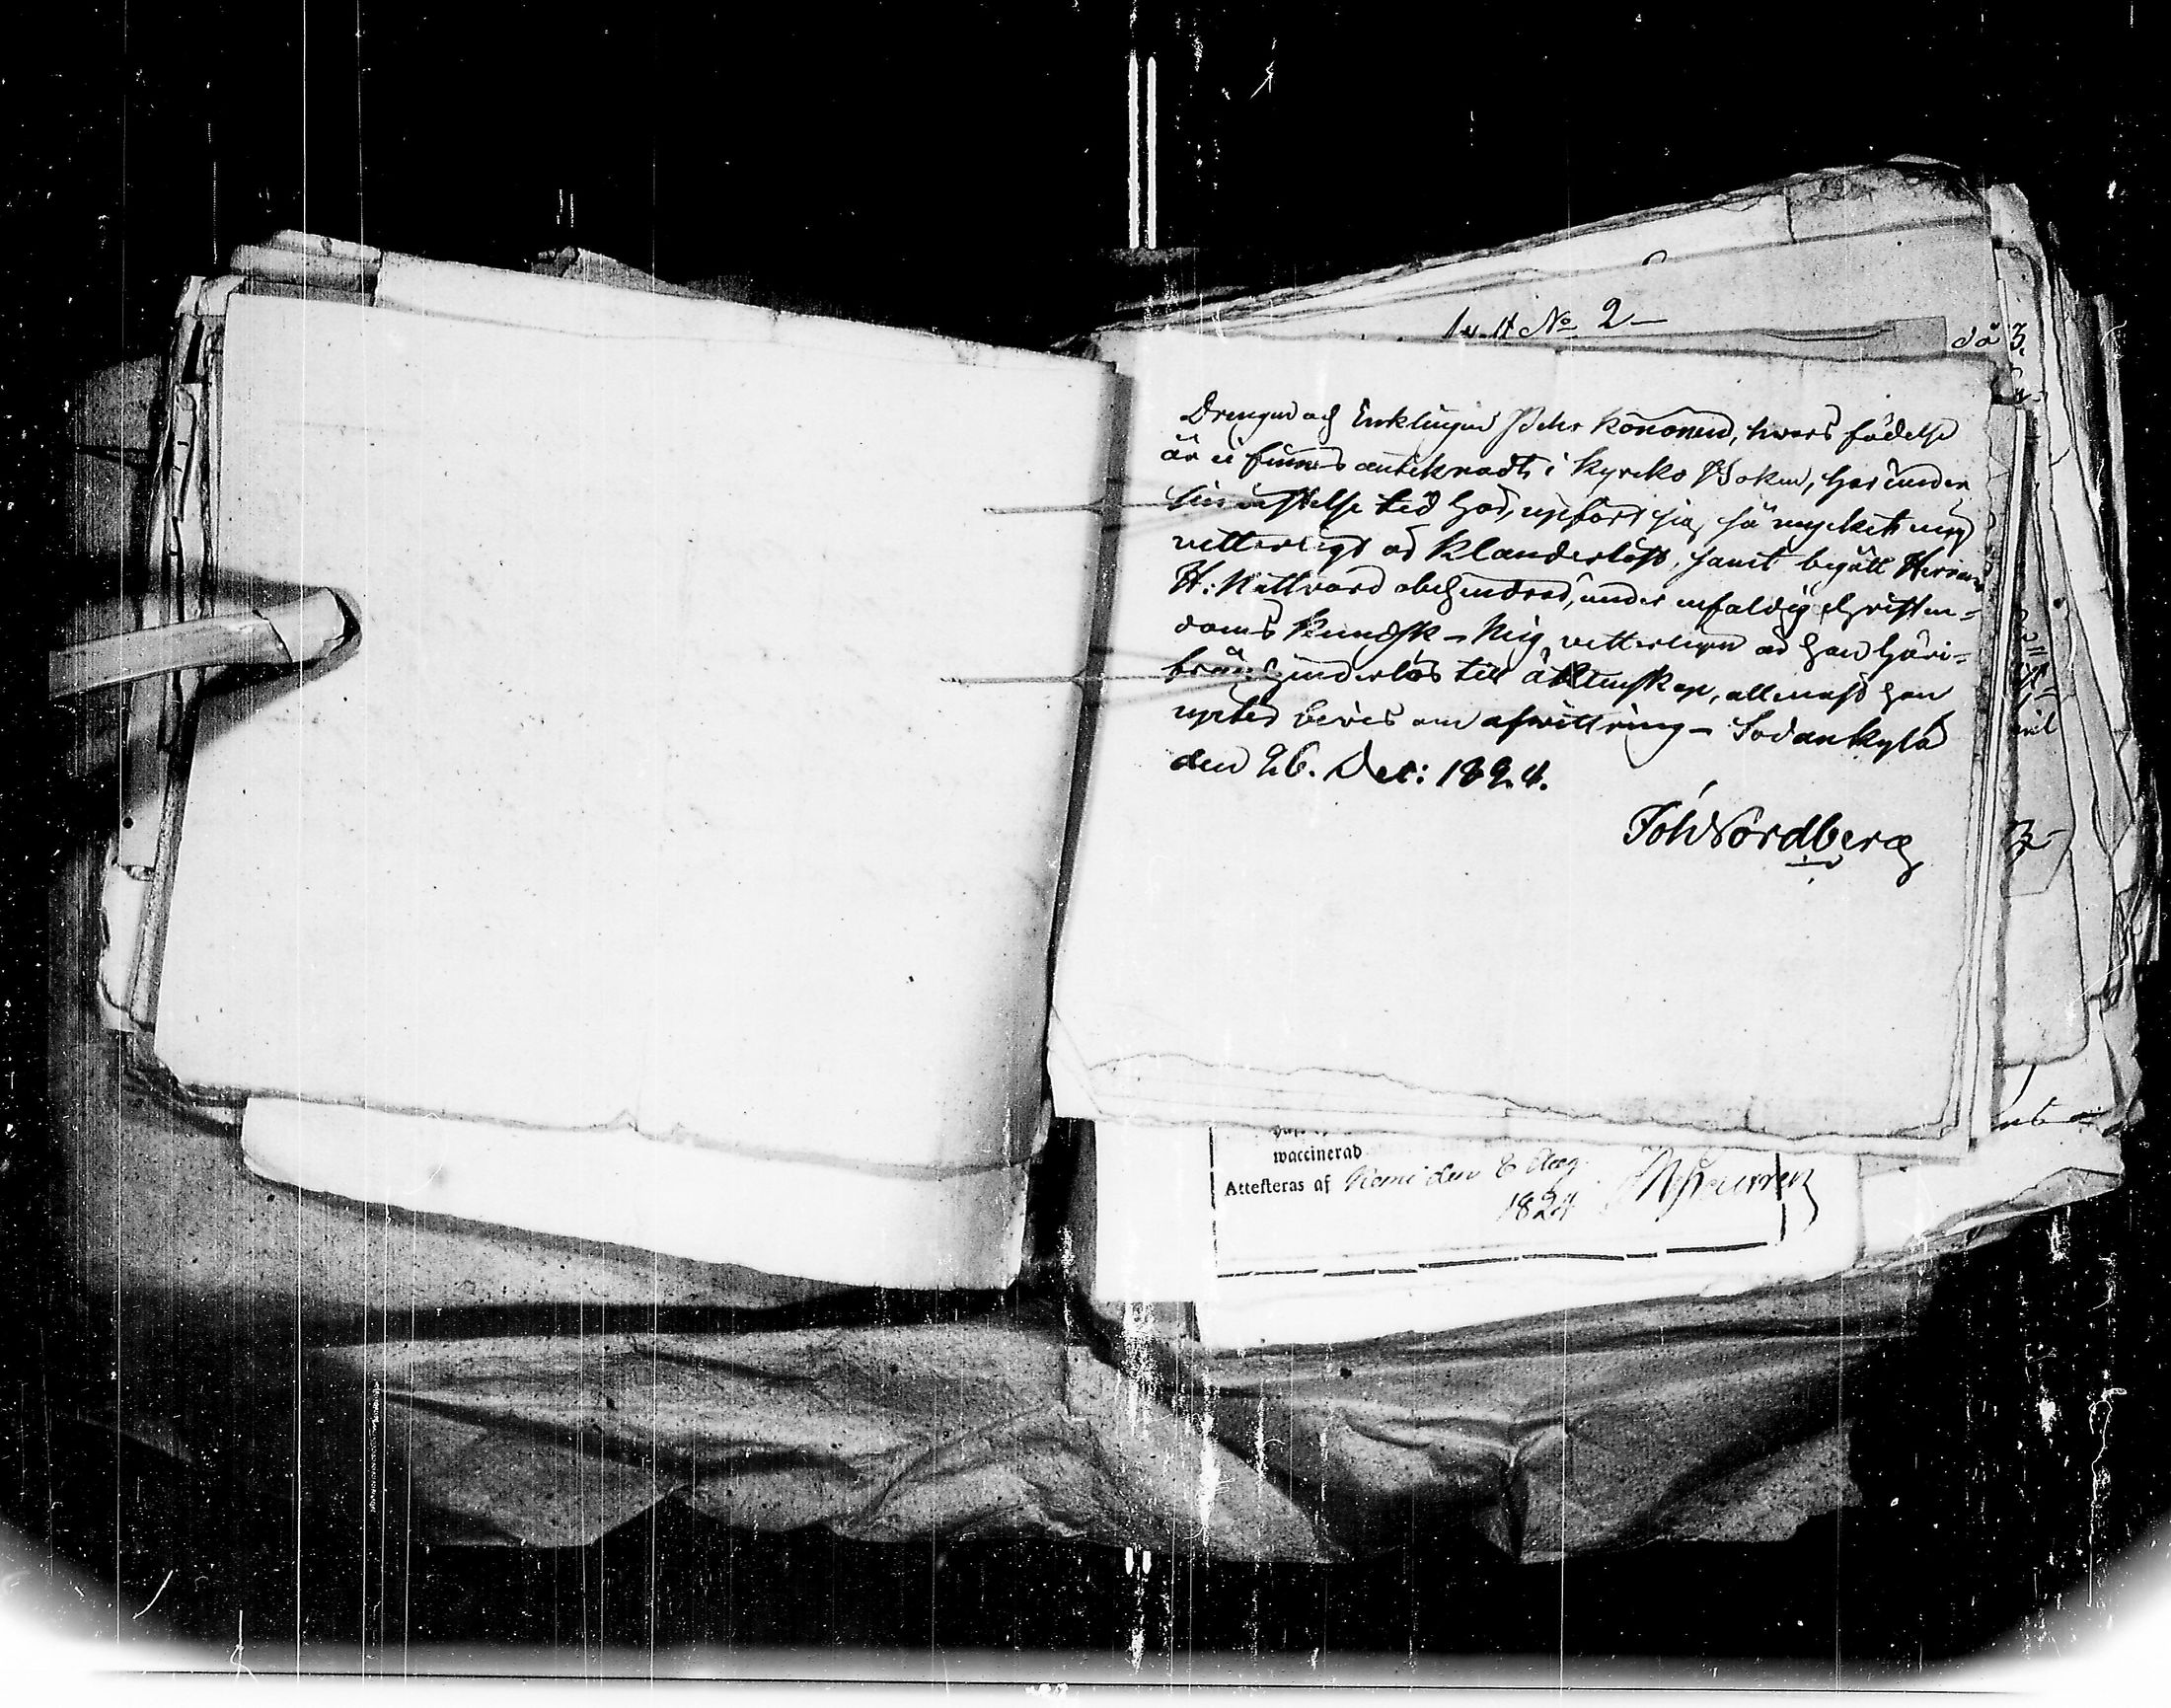 No 2
då 3.
Drengen och Enklingen Pehr Kononen, hwars födelse
år ei finnes antecknadt i Kyrko Boken, har under
sin wistelse tid här, upfört sig, så mycket mig
vetterligt är klanderlöst, samt begått Herrans
H: Nattvard obehindrad, under enfaldig christen-
doms kundsk - Mig vetterligen är han häri-
från hinderlös till äktenskap, allenast han
upter bevis om afwittring - Sodankylä
den 26. Dec: 1824.
Joh Nordberg
waccinerad
Attesteras af Kemi den 8 Aug.
1824